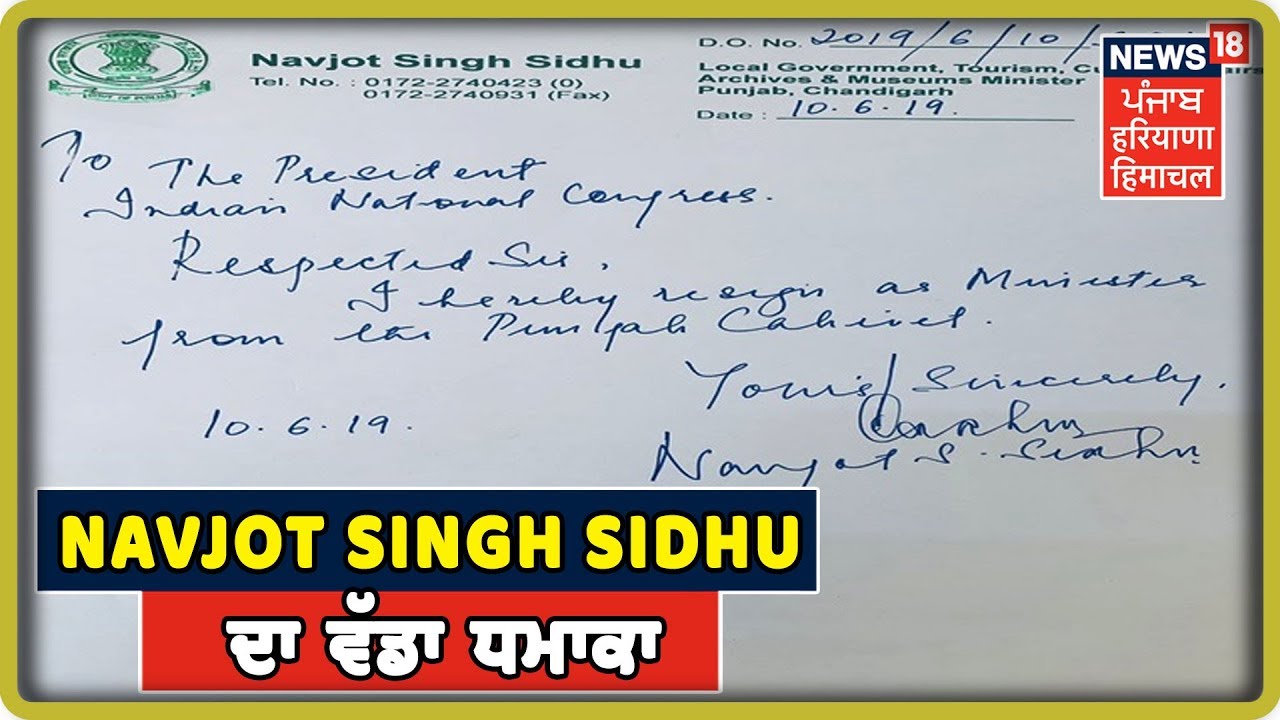 Navjot Singh Sidhu
Tel. No. : 0172-2740423 (O)
0172-2740931 (Fax)
D.O. No. 2019/6/10/
Local Government, Tourism,
Archives & Museums Minister
Punjab, Chandigarh
Date : 10.6.19.
NEWS 18
ਪੰਜਾਬ
ਹਰਿਯਾਣਾ
ਹਿਮਾਚਲ
To The President
Indian National Congress.
Respected Sir,
I hereby resign as Minister
from the Punjab Cabinet.
Yours Sincerely,
10.6.19.
Navjot S. Sidhu
NAVJOT SINGH SIDHU
ਦਾ ਵੱਡਾ ਧਮਾਕਾ